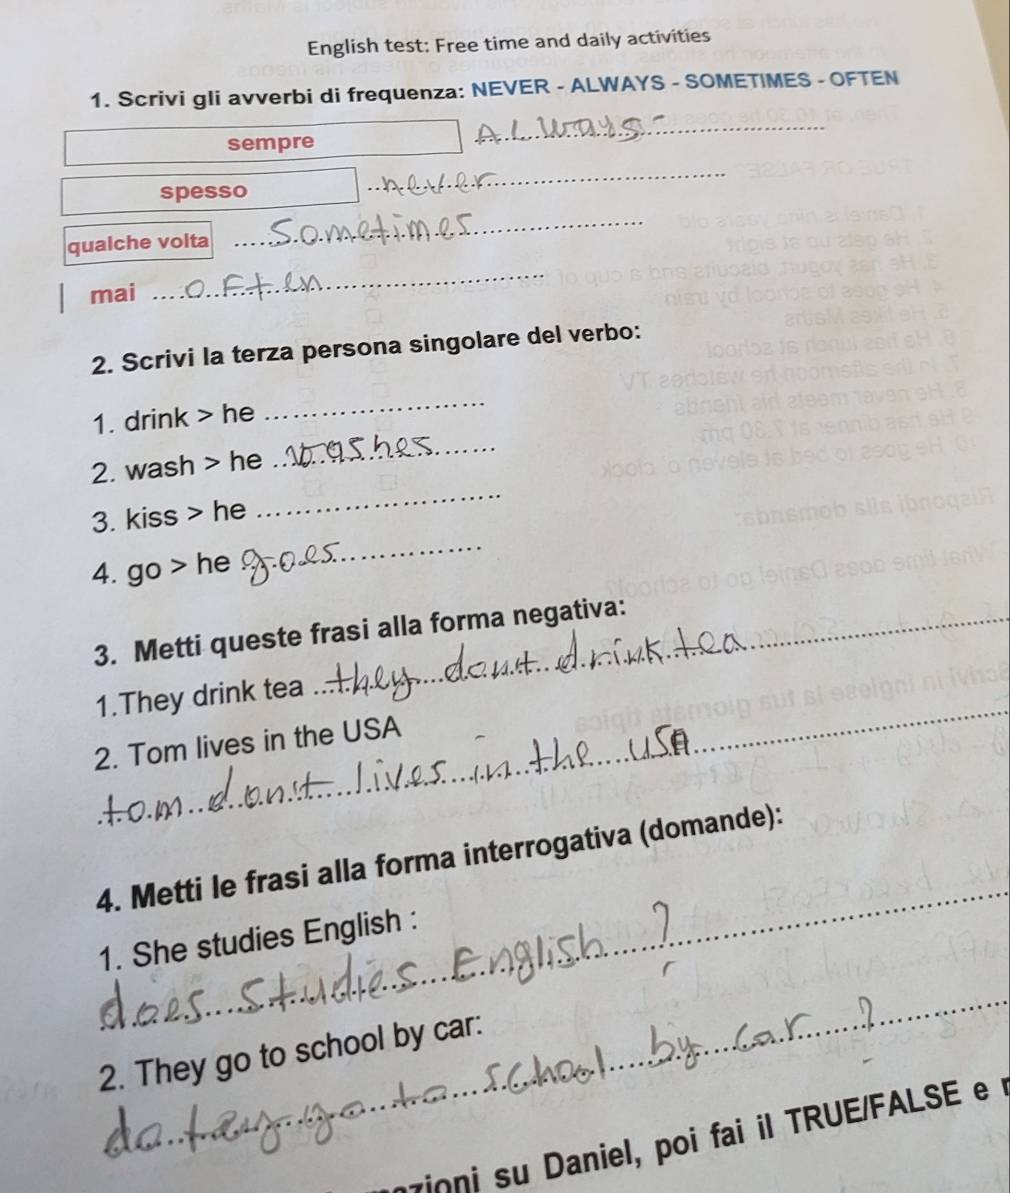 English test: Free time and daily activities
1. Scrivi gli avverbi di frequenza: NEVER - ALWAYS - SOMETIMES - OFTEN
sempre ALWays
spesso never
qualche volta Sometimes
mai oFten
2. Scrivi la terza persona singolare del verbo:
1. drink > he
2. wash > he washes
3. kiss > he
4. go > he goes
3. Metti queste frasi alla forma negativa:
1.They drink tea they don't drink tea
2. Tom lives in the USA
tom don't lives in the USA
4. Metti le frasi alla forma interrogativa (domande):
1. She studies English :
does studies English ?
2. They go to school by car:
do tey go to school by car ?
su Daniel, poi fai il TRUE/FALSE e